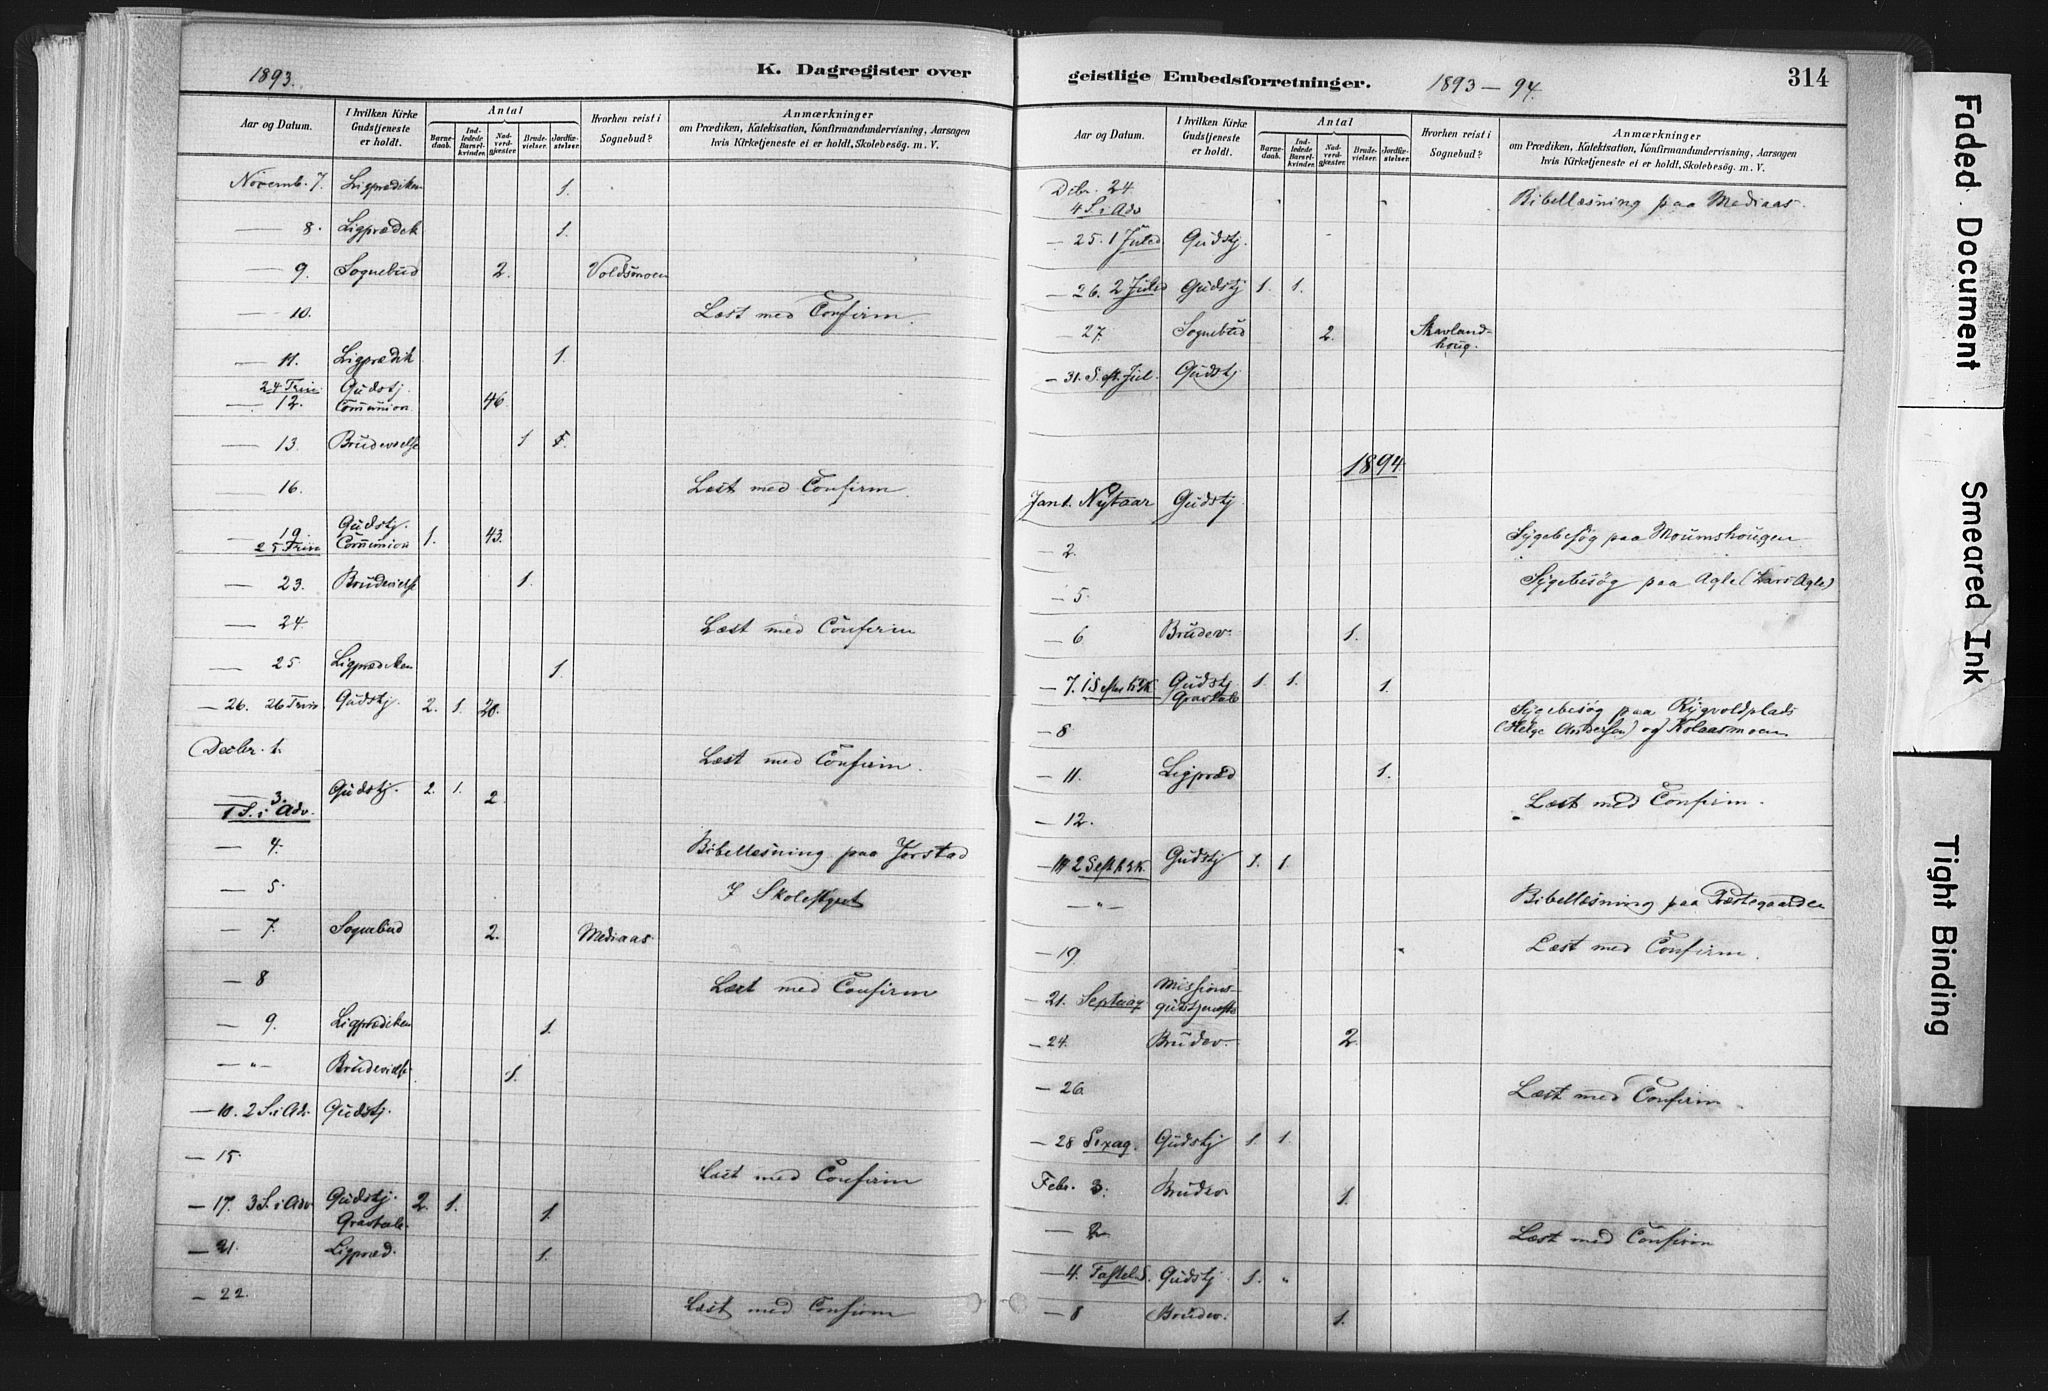 1893.
K. Dagregister over
Aar og Datum.
I hvilken Kirke Gudstjeneste er holdt.
Antal
Barnedaab.
Indledede Barselkvinder.
Nadverdgjæster.
Brudevielser.
Jordfæstelser.
Hvorhen reist i Sognebud?
Anmærkninger
om Prædiken, Katekisation, Konfirmandundervisning, Aarsagen
hvis Kirketjeneste ei er holdt, Skolebesøg. m. V.
Novemb. 7. Ligprædiken 1.
— 8. Ligprædik 1.
— 9. Sognebud 2. Voldsmoen
— 10. Læst med Confirm.
— 11. Ligprædik 1.
24 Trin Gudstj.
— 12. Communion 46.
— 13. Brudevielse 1
— 16. Læst med Confirm.
— 19. Gudstj.
25 Trin Communion 1. 43.
— 23. Brudevielse 1.
— 24 Læst med Confirm
— 25 Ligprædiken 1
— 26. 26 Trin. Gudstj. 2. 1. 20.
Decbr. 1. Læst med Confirm.
— 3. Gudstj. 2. 1. 2.
1 S. i Adv.
— 4. Bibellæsning paa Jørstad
— 5. I Skolestyret
— 7. Sognebud 2. Mediaas.
— 8 Læst med Confirm
— 9. Ligprædiken 1.
— " — Brudevielse 1.
— 10. 2 S. i Adv. Gudstj.
— 15. Læst med Confirm
— 17. 3 S. i Adv Gudstj. 2. 1. 1.
Gravtale.
— 21. Ligpræd. 1.
— 22. Læst med Confirm
geistlige Embedsforretninger.
1893 — 94.
314
Aar og Datum.
I hvilken Kirke Gudstjeneste er holdt.
Antal
Barnedaab.
Indledede Barselkvinder.
Nadverdgjæster.
Brudevielser.
Jordfæstelser.
Hvorhen reist i Sognebud?
Anmærkninger
om Prædiken, Katekisation, Konfirmandundervisning, Aarsagen
hvis Kirketjeneste ei er holdt, Skolebesøg. m. V.
Dcbr. 24
4 S i Adv Bibellæsning paa Mediaas.
— 25. 1 Juled Gudstj.
— 26. 2 Juled Gudstj 1. 1.
— 27. Sognebud 2. Skavland-
houg.
— 31. S. eft. Jul. Gudstj
1894
Jan 1. Nytaar Gudstj.
— 2. Sygebesøg paa Moumshougen
— 5. Sygebesøg paa Agle (Lars Agle)
— 6 Brudev. 1.
— 7. 1 S efter H3K Gudstj. 1. 1. 1.
Gravtale
— 8 Sygebesøg paa Rygvoldplads
(Helge Andersen) og Kolaasmoen
— 11. Ligpræd 1.
— 12. Læst med Confirm.
— 14 2 S eft H3K. Gudstj 1. 1.
— " — Bibellæsning paa Præstegaarden
— 19. Læst med Confirm.
— 21. Septuag Missions-
gudstjeneste
— 24. Brudev. 2.
— 26 Læst med Confirm
— 28 Sexag. Gudstj 1. 1.
Febr. 3. Brudev 1.
— 2. Læst med Confirm
— 4. Fastel.S. Gudstj. 1. "
— 8 Brudev. 1.
Faded Document
Smeared Ink
Tight Binding